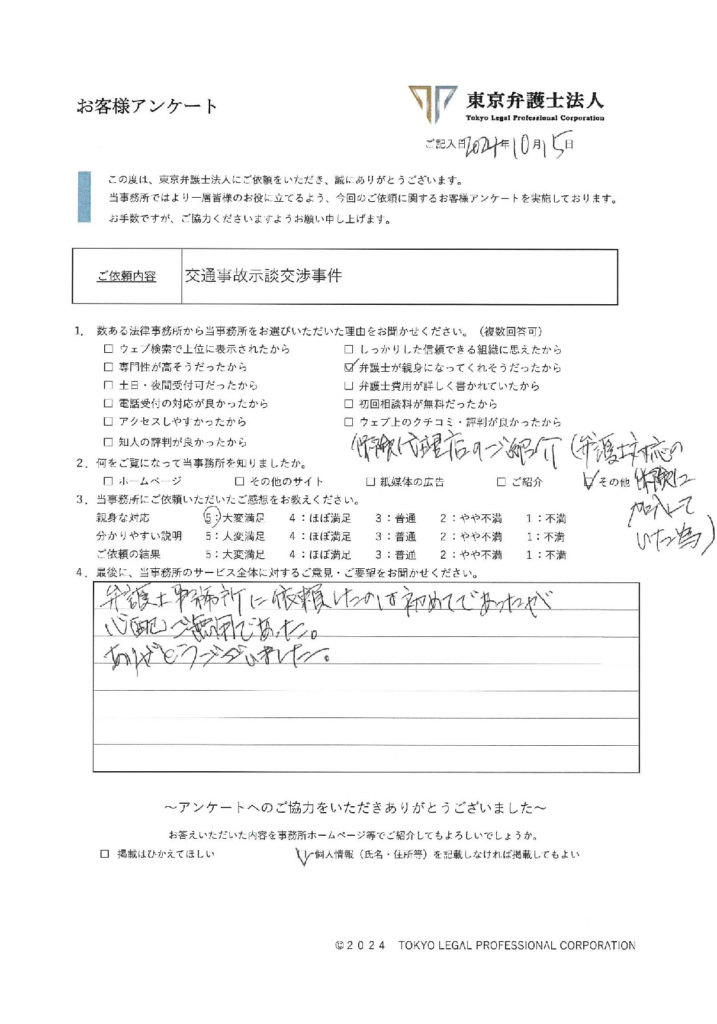 お客様アンケート
東京弁護士法人
Tokyo Legal Professional Corporation
ご記入日2024年10月15日
この度は、東京弁護士法人にご依頼をいただき、誠にありがとうございます。
当事務所ではより一層皆様のお役に立てるよう、今回のご依頼に関するお客様アンケートを実施しております。
お手数ですが、ご協力くださいますようお願い申し上げます。
ご依頼内容 交通事故示談交渉事件
1. 数ある法律事務所から当事務所をお選びいただいた理由をお聞かせください。（複数回答可）
□ ウェブ検索で上位に表示されたから □ しっかりした信頼できる組織に思えたから
□ 専門性が高そうだったから ☑ 弁護士が親身になってくれそうだったから
□ 土日・夜間受付可だったから □ 弁護士費用が詳しく書かれていたから
□ 電話受付の対応が良かったから □ 初回相談料が無料だったから
□ アクセスしやすかったから □ ウェブ上のクチコミ・評判が良かったから
□ 知人の評判が良かったから
保険代理店のご紹介（弁護士対応の
保険に
加入して
いた為）
2. 何をご覧になって当事務所を知りましたか。
□ ホームページ □ その他のサイト □ 紙媒体の広告 □ ご紹介 ☑ その他
3. 当事務所にご依頼いただいたご感想をお教えください。
親身な対応 5：大変満足 4：ほぼ満足 3：普通 2：やや不満 1：不満
分かりやすい説明 5：大変満足 4：ほぼ満足 3：普通 2：やや不満 1：不満
ご依頼の結果 5：大変満足 4：ほぼ満足 3：普通 2：やや不満 1：不満
4. 最後に、当事務所のサービス全体に対するご意見・ご要望をお聞かせください。
弁護士事務所に依頼したのは初めてであったが
心配ご無用であった。
ありがとうございました。
～アンケートへのご協力をいただきありがとうございました～
お答えいただいた内容を事務所ホームページ等でご紹介してもよろしいでしょうか。
□ 掲載はひかえてほしい ☑ 個人情報（氏名・住所等）を記載しなければ掲載してもよい
©2024 TOKYO LEGAL PROFESSIONAL CORPORATION